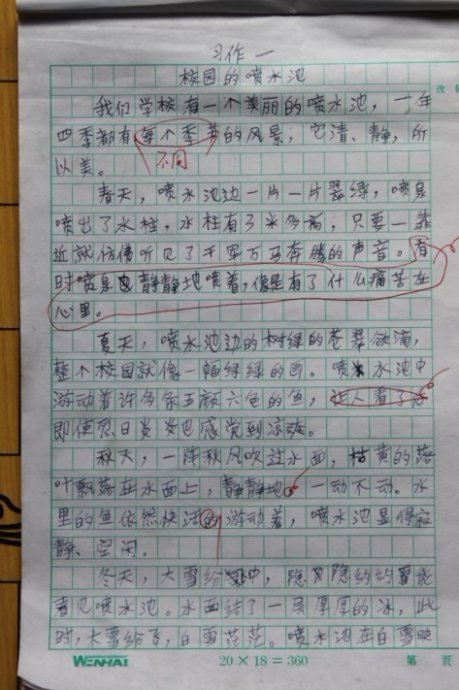 习作一
校园的喷水池
改
我们学校有一个美丽的喷水池，一年
四季都有每个季节的风景，它清、静，所
不同
以美。
春天，喷水池边一片一片翠绿，喷泉
喷出了水柱，水柱有3米多高，只要一靠
近就仿佛听见了千军万马奔腾的声音。有
时喷泉也静静地喷着，像是有了什么痛苦在
心里。
夏天，喷水池边的树绿的苍翠欲滴，
整个校园就像一幅绿绿的画。喷水池中
游动着许多条五颜六色的鱼，让人看了
即使烈日炎炎也感觉到凉爽。
秋天，一阵秋风吹过水面，枯黄的落
叶飘落在水面上，静静地，一动不动。水
里的鱼依然快活的游动着，喷水池显得寂
静、空闲。
冬天，大雪纷飞中，隐隐约约能
看见喷水池。水面结了一层厚厚的冰，此
时，大雪纷飞，白雪茫茫。喷水池在白雪映
WENHAI 20×18=360 第 页